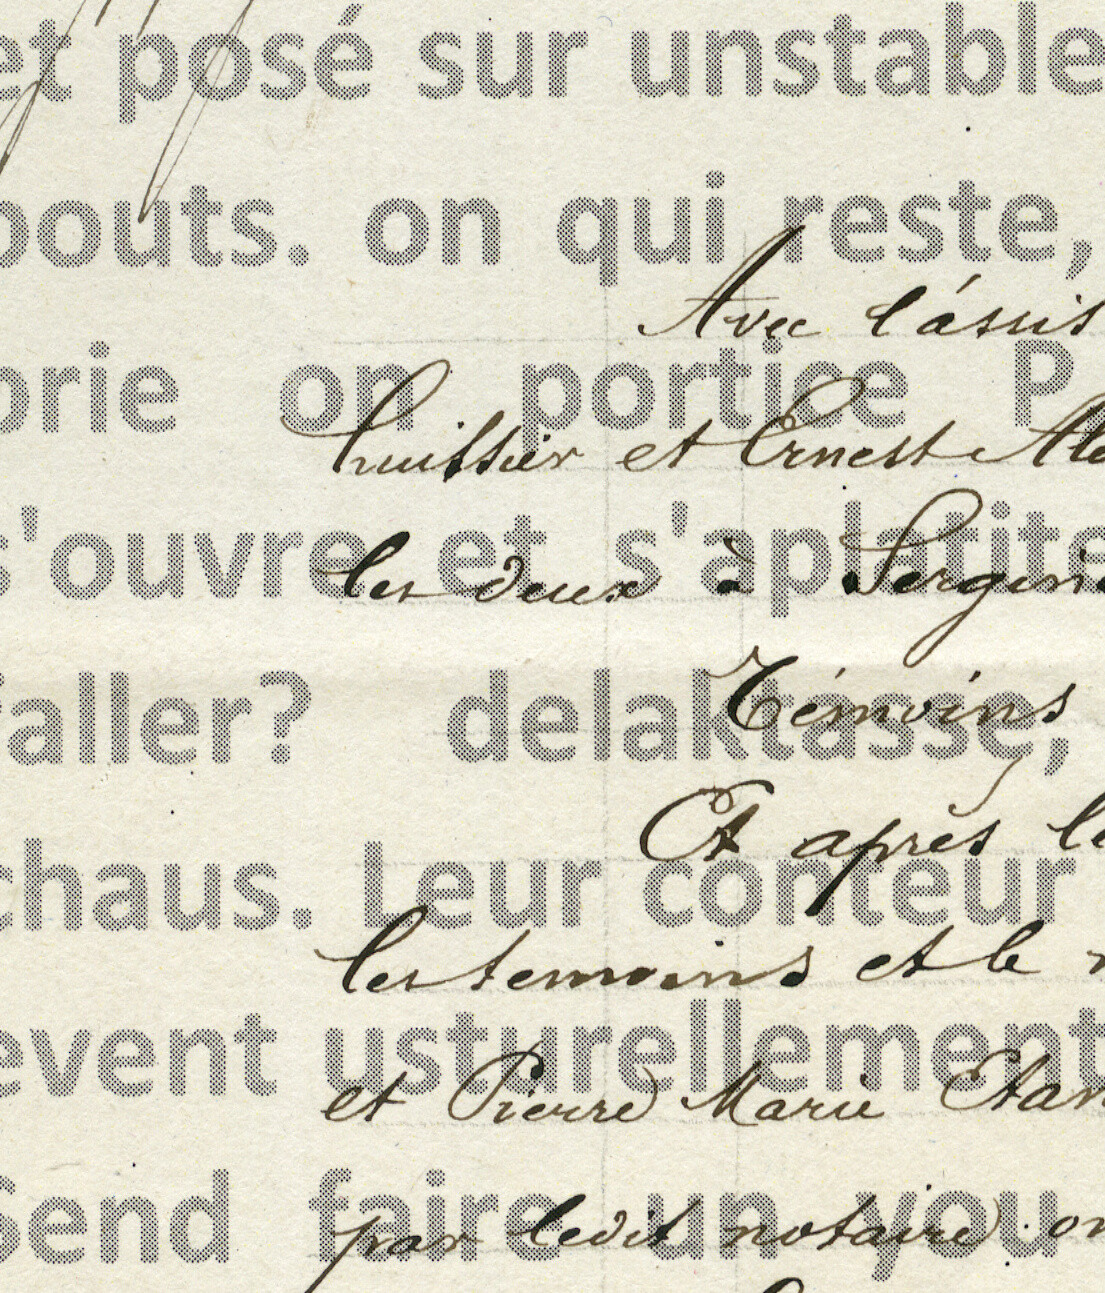 et posé sur unstable
bouts. on qui reste,
Avec l'assis
brie on portice P
huissier et Ernest Ale
s'ouvre et s'aplatite
les deux à Sergine
faller? delaktasse,
Témoins
Et après le
chaus. Leur conteur
les temoins et le
event usturellement
et Pierre Marie Etan
Send faire un you
par ledit notaire on